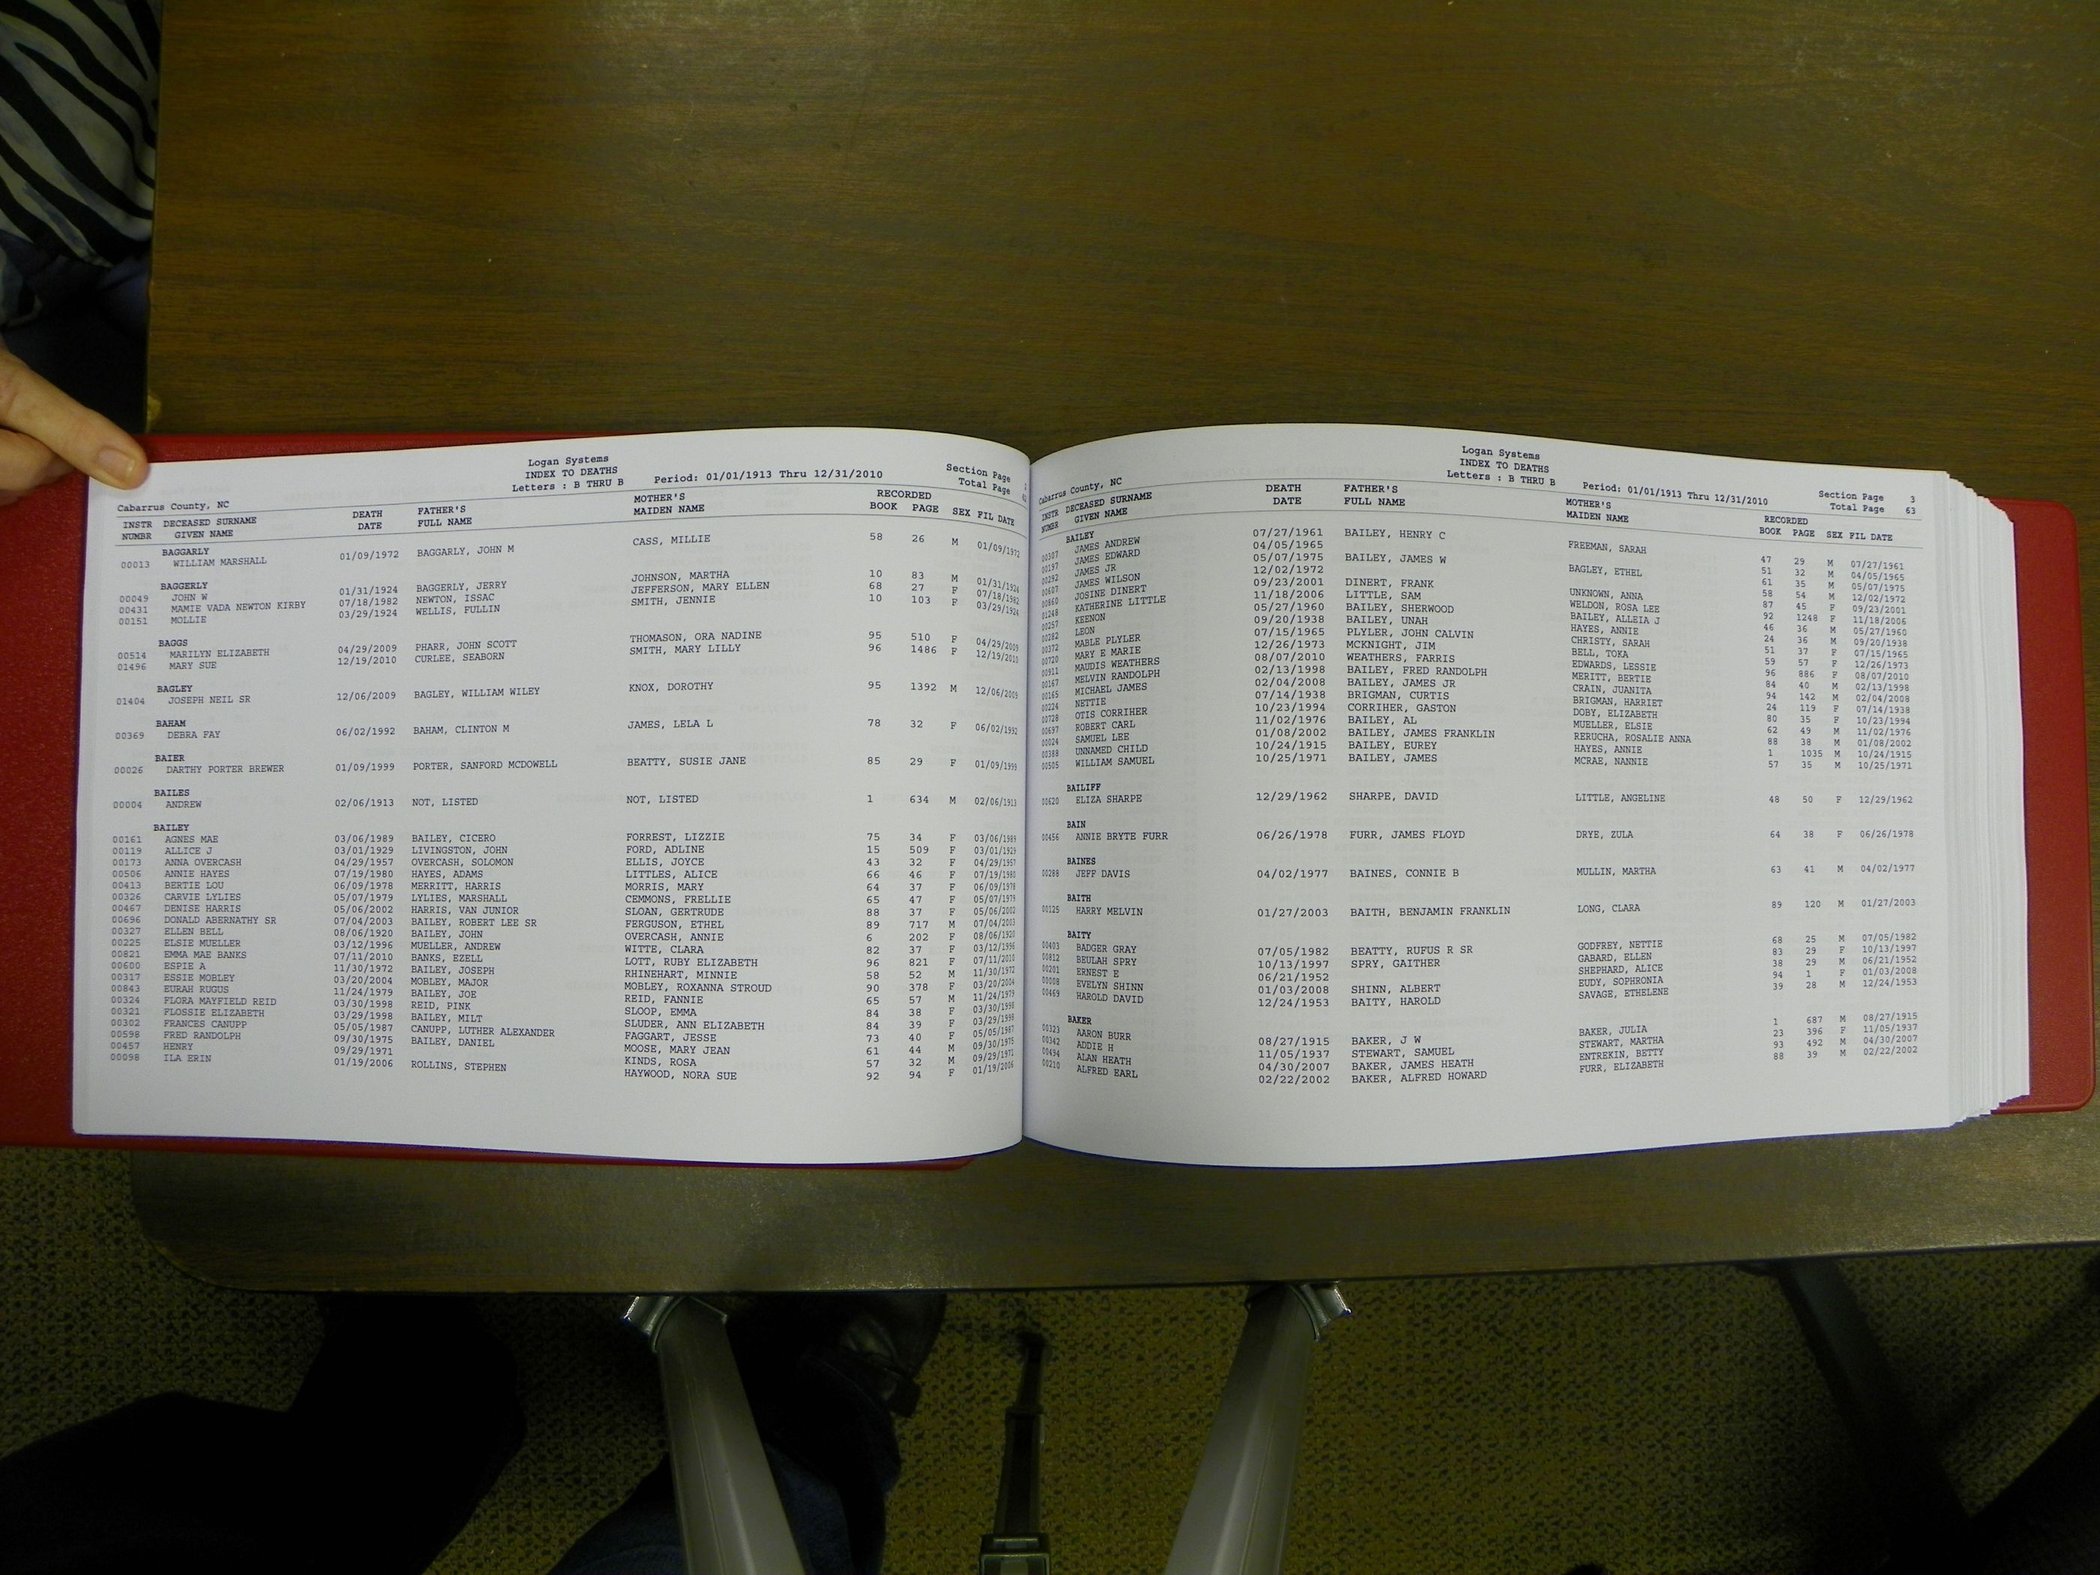 Logan Systems
INDEX TO DEATHS
Letters : B THRU B Period: 01/01/1913 Thru 12/31/2010 Section Page
Total Page
Cabarrus County, NC
INSTR DECEASED SURNAME DEATH FATHER'S MOTHER'S RECORDED
NUMBR GIVEN NAME DATE FULL NAME MAIDEN NAME BOOK PAGE SEX FIL DATE
BAGGARLY
00013 WILLIAM MARSHALL 01/09/1972 BAGGARLY, JOHN M CASS, MILLIE 58 26 M 01/09/1972
BAGGERLY
00049 JOHN W 01/31/1924 BAGGERLY, JERRY JOHNSON, MARTHA 10 83 M 01/31/1924
00431 MAMIE VADA NEWTON KIRBY 07/18/1982 NEWTON, ISSAC JEFFERSON, MARY ELLEN 68 27 F 07/18/1982
00151 MOLLIE 03/29/1924 WELLIS, FULLIN SMITH, JENNIE 10 103 F 03/29/1924
BAGGS
00514 MARILYN ELIZABETH 04/29/2009 PHARR, JOHN SCOTT THOMASON, ORA NADINE 95 510 F 04/29/2009
01496 MARY SUE 12/19/2010 CURLEE, SEABORN SMITH, MARY LILLY 96 1486 F 12/19/2010
BAGLEY
01404 JOSEPH NEIL SR 12/06/2009 BAGLEY, WILLIAM WILEY KNOX, DOROTHY 95 1392 M 12/06/2009
BAHAM
00369 DEBRA FAY 06/02/1992 BAHAM, CLINTON M JAMES, LELA L 78 32 F 06/02/1992
BAIER
00026 DARTHY PORTER BREWER 01/09/1999 PORTER, SANFORD MCDOWELL BEATTY, SUSIE JANE 85 29 F 01/09/1999
BAILES
00004 ANDREW 02/06/1913 NOT, LISTED NOT, LISTED 1 634 M 02/06/1913
BAILEY
00161 AGNES MAE 03/06/1989 BAILEY, CICERO FORREST, LIZZIE 75 34 F 03/06/1989
00119 ALLICE J 03/01/1929 LIVINGSTON, JOHN FORD, ADLINE 15 509 F 03/01/1929
00173 ANNA OVERCASH 04/29/1957 OVERCASH, SOLOMON ELLIS, JOYCE 43 32 F 04/29/1957
00506 ANNIE HAYES 07/19/1980 HAYES, ADAMS LITTLES, ALICE 66 46 F 07/19/1980
00413 BERTIE LOU 06/09/1978 MERRITT, HARRIS MORRIS, MARY 64 37 F 06/09/1978
00326 CARVIE LYLIES 05/07/1979 LYLIES, MARSHALL CEMMONS, FRELLIE 65 47 F 05/07/1979
00467 DENISE HARRIS 05/06/2002 HARRIS, VAN JUNIOR SLOAN, GERTRUDE 88 37 F 05/06/2002
00696 DONALD ABERNATHY SR 07/04/2003 BAILEY, ROBERT LEE SR FERGUSON, ETHEL 89 717 M 07/04/2003
00327 ELLEN BELL 08/06/1920 BAILEY, JOHN OVERCASH, ANNIE 6 202 F 08/06/1920
00225 ELSIE MUELLER 03/12/1996 MUELLER, ANDREW WITTE, CLARA 82 37 F 03/12/1996
00821 EMMA MAE BANKS 07/11/2010 BANKS, EZELL LOTT, RUBY ELIZABETH 96 821 F 07/11/2010
00600 ESPIE A 11/30/1972 BAILEY, JOSEPH RHINEHART, MINNIE 58 52 M 11/30/1972
00317 ESSIE MOBLEY 03/20/2004 MOBLEY, MAJOR MOBLEY, ROXANNA STROUD 90 378 F 03/20/2004
00843 EURAH RUGUS 11/24/1979 BAILEY, JOE REID, FANNIE 65 57 M 11/24/1979
00324 FLORA MAYFIELD REID 03/30/1998 REID, PINK SLOOP, EMMA 84 38 F 03/30/1998
00321 FLOSSIE ELIZABETH 03/29/1998 BAILEY, MILT SLUDER, ANN ELIZABETH 84 39 F 03/29/1998
00302 FRANCES CANUPP 05/05/1987 CANUPP, LUTHER ALEXANDER FAGGART, JESSE 73 40 F 05/05/1987
00598 FRED RANDOLPH 09/30/1975 BAILEY, DANIEL MOOSE, MARY JEAN 61 44 M 09/30/1975
00457 HENRY 09/29/1971 KINDS, ROSA 57 32 M 09/29/1971
00098 ILA ERIN 01/19/2006 ROLLINS, STEPHEN HAYWOOD, NORA SUE 92 94 F 01/19/2006
Logan Systems
INDEX TO DEATHS
Letters : B THRU B Period: 01/01/1913 Thru 12/31/2010 Section Page 3
Total Page 63
Cabarrus County, NC
INSTR DECEASED SURNAME DEATH FATHER'S MOTHER'S RECORDED
NUMBR GIVEN NAME DATE FULL NAME MAIDEN NAME BOOK PAGE SEX FIL DATE
BAILEY
00307 JAMES ANDREW 07/27/1961 BAILEY, HENRY C FREEMAN, SARAH 47 29 M 07/27/1961
00197 JAMES EDWARD 04/05/1965 51 32 M 04/05/1965
00292 JAMES JR 05/07/1975 BAILEY, JAMES W BAGLEY, ETHEL 61 35 M 05/07/1975
00607 JAMES WILSON 12/02/1972 58 54 M 12/02/1972
00860 JOSINE DINERT 09/23/2001 DINERT, FRANK UNKNOWN, ANNA 87 45 F 09/23/2001
01248 KATHERINE LITTLE 11/18/2006 LITTLE, SAM WELDON, ROSA LEE 92 1248 F 11/18/2006
00257 KEENON 05/27/1960 BAILEY, SHERWOOD BAILEY, ALLEIA J 46 36 M 05/27/1960
00282 LEON 09/20/1938 BAILEY, UNAH HAYES, ANNIE 24 36 M 09/20/1938
00372 MABLE PLYLER 07/15/1965 PLYLER, JOHN CALVIN CHRISTY, SARAH 51 37 F 07/15/1965
00720 MARY E MARIE 12/26/1973 MCKNIGHT, JIM BELL, TOKA 59 57 F 12/26/1973
00911 MAUDIS WEATHERS 08/07/2010 WEATHERS, FARRIS EDWARDS, LESSIE 96 886 F 08/07/2010
00167 MELVIN RANDOLPH 02/13/1998 BAILEY, FRED RANDOLPH MERITT, BERTIE 84 40 M 02/13/1998
00165 MICHAEL JAMES 02/04/2008 BAILEY, JAMES JR CRAIN, JUANITA 94 142 M 02/04/2008
00224 NETTIE 07/14/1938 BRIGMAN, CURTIS BRIGMAN, HARRIET 24 119 F 07/14/1938
00728 OTIS CORRIHER 10/23/1994 CORRIHER, GASTON DOBY, ELIZABETH 80 35 F 10/23/1994
00697 ROBERT CARL 11/02/1976 BAILEY, AL MUELLER, ELSIE 62 49 M 11/02/1976
00024 SAMUEL LEE 01/08/2002 BAILEY, JAMES FRANKLIN RERUCHA, ROSALIE ANNA 88 38 M 01/08/2002
00388 UNNAMED CHILD 10/24/1915 BAILEY, EUREY HAYES, ANNIE 1 1035 M 10/24/1915
00505 WILLIAM SAMUEL 10/25/1971 BAILEY, JAMES MCRAE, NANNIE 57 35 M 10/25/1971
BAILIFF
00620 ELIZA SHARPE 12/29/1962 SHARPE, DAVID LITTLE, ANGELINE 48 50 F 12/29/1962
BAIN
00456 ANNIE BRYTE FURR 06/26/1978 FURR, JAMES FLOYD DRYE, ZULA 64 38 F 06/26/1978
BAINES
00288 JEFF DAVIS 04/02/1977 BAINES, CONNIE B MULLIN, MARTHA 63 41 M 04/02/1977
BAITH
00125 HARRY MELVIN 01/27/2003 BAITH, BENJAMIN FRANKLIN LONG, CLARA 89 120 M 01/27/2003
BAITY
00403 BADGER GRAY 07/05/1982 BEATTY, RUFUS R SR GODFREY, NETTIE 68 25 M 07/05/1982
00812 BEULAH SPRY 10/13/1997 SPRY, GAITHER GABARD, ELLEN 83 29 F 10/13/1997
00201 ERNEST E 06/21/1952 SHEPHARD, ALICE 38 29 M 06/21/1952
00008 EVELYN SHINN 01/03/2008 SHINN, ALBERT EUDY, SOPHRONIA 94 1 F 01/03/2008
00469 HAROLD DAVID 12/24/1953 BAITY, HAROLD SAVAGE, ETHELENE 39 28 M 12/24/1953
BAKER
00323 AARON BURR 08/27/1915 BAKER, J W BAKER, JULIA 1 687 M 08/27/1915
00342 ADDIE H 11/05/1937 STEWART, SAMUEL STEWART, MARTHA 23 396 F 11/05/1937
00494 ALAN HEATH 04/30/2007 BAKER, JAMES HEATH ENTREKIN, BETTY 93 492 M 04/30/2007
00210 ALFRED EARL 02/22/2002 BAKER, ALFRED HOWARD FURR, ELIZABETH 88 39 M 02/22/2002